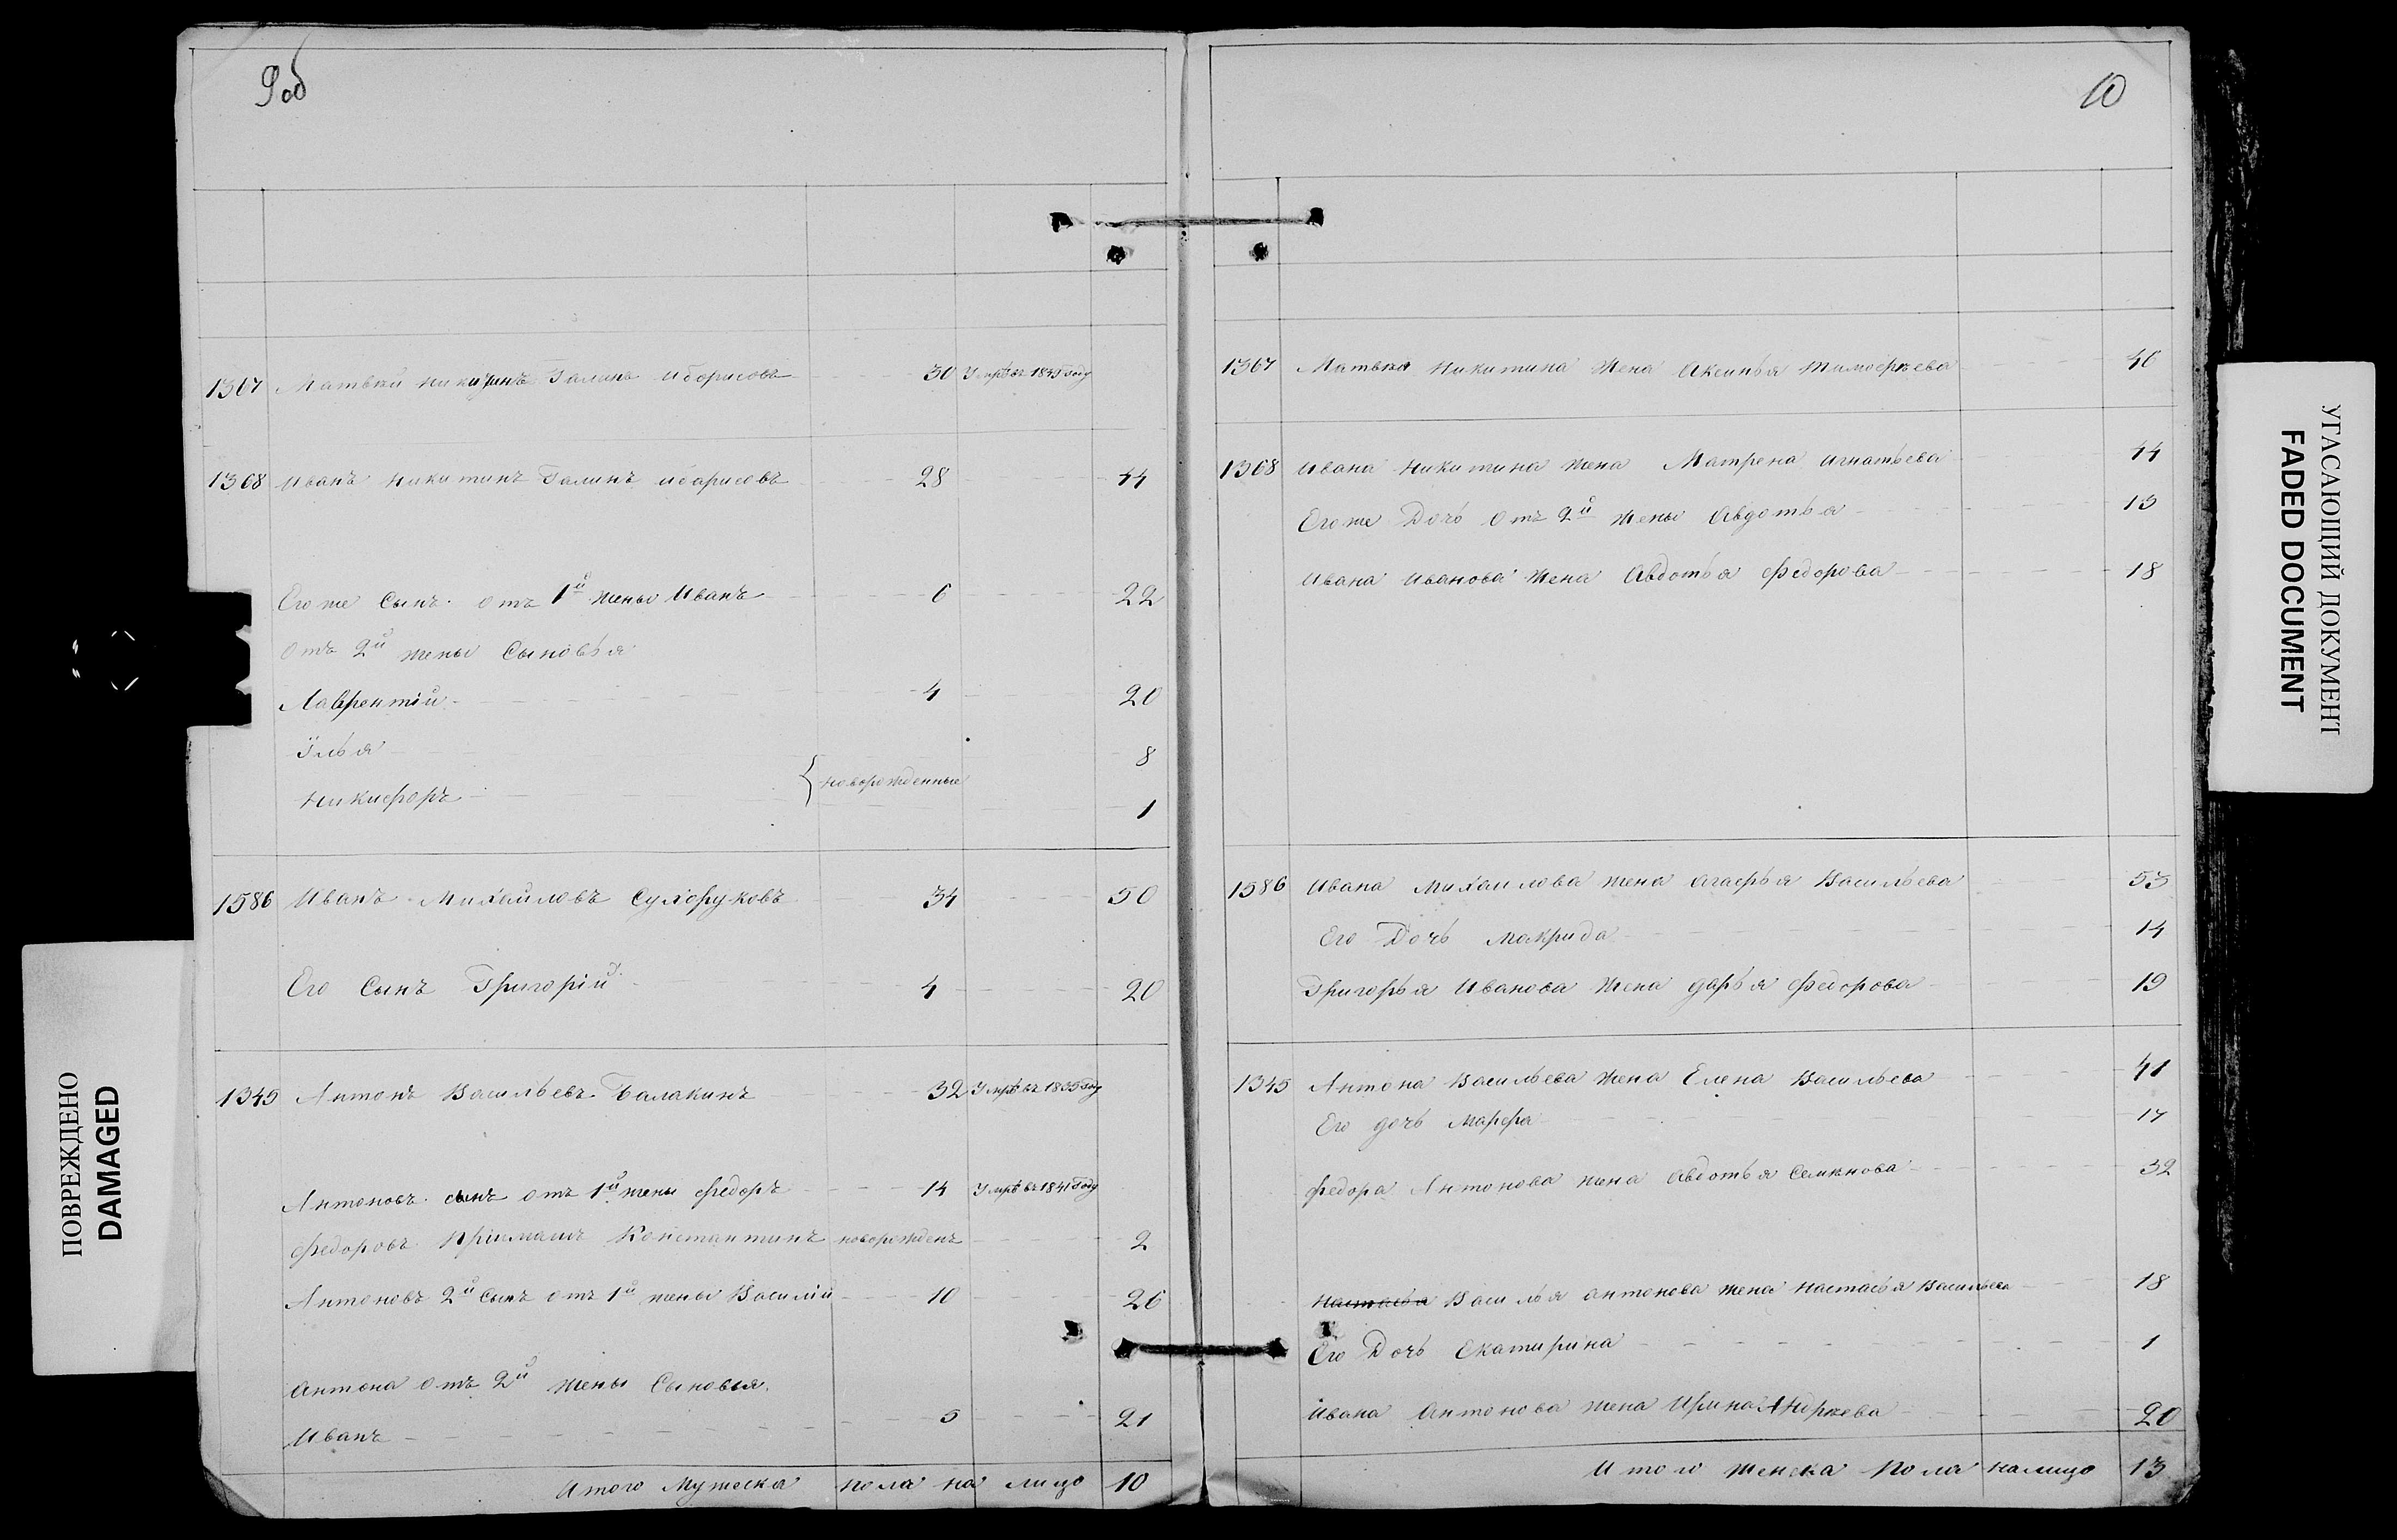 9об
1367 Матвѣй Никитинъ Галинъ иборисовъ 30 Умръ въ 1849 году
1368 Иванъ Никитинъ Галинъ иборисовъ 28 44
Егоже Сынъ отъ 1й жены Иванъ 6 22
Отъ 2й жены Сыновья
Лаврентій 4 20
Илья 8
новорожденные
Никифоръ 1
1586 Иванъ Михайловъ Сухоруковъ 34 50
Его Сынъ Григорій 4 20
1345 Антонъ Васильевъ Балакинъ 32 Умръ въ 1835 году
Антоновъ сынъ отъ 1й жены Федоръ 14 Умръ въ 1841 году
Федоровъ Пріимашъ Константинъ новорожденъ 2
Антоновъ 2й Сынъ отъ 1й жены Василій 10 26
Антона отъ 2й жены Сыновья
Иванъ 5 21
Итого Мужеска пола на лицо 10
10
1367 Матвѣя Никитина Жена Аксинья Тимофѣева 46
1368 Ивана Никитина жена Матрена Игнатьева 44
Егоже Дочь Отъ 2й жены Авдотья 13
Ивана Иванова Жена Авдотья Федорова 18
1586 Ивана Михаилова жена Агафья Васильева 53
Его Дочь Макрида 14
Григорья Иванова Жена Дарья Федорова 19
1345 Антона Васильева Жена Елена Васильева 41
Его дочь Марфа 17
Федора Антонова жена Авдотья Семѣнова 32
Настасья Василья Антонова жена Настасья Васильева 18
Его Дочь Екатирина 1
Ивана Антонова жена Ирина Андрѣева 20
Итого Женска Пола налицо 13
ПОВРЕЖДЕНО
DAMAGED
УГАСАЮЩИЙ ДОКУМЕНТ
FADED DOCUMENT